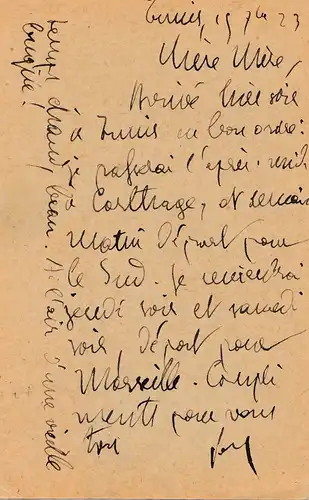 Tunis, 19 7bre 23
Chère Mère,
Arrivé hier soir
à Tunis en bon ordre:
passerai l'après-midi
à Carthage, et demain
matin départ pour
le Sud. Je reviendrai
jeudi soir et samedi
soir, départ pour
Marseille. Compli
ments pour vous
tous
temps chaud, beau. A l'air d'une vieille